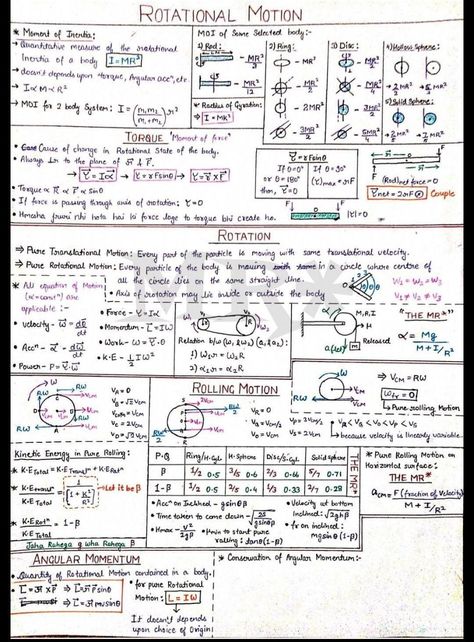 ROTATIONAL MOTION
* Moment of Inertia:
→ Quantitative measure of the rotational
Inertia of a body I = MR²
→ doesn't depends "torque, Angular acc", etc
→ I ∝ M ∝ R²
→ MOI for 2 body System: I = (m₁m₂/m₁+m₂) r²
MOI of Some Selected body:-
1) Rod:
MR²/3
MR²/12
* Radius of Gyration:
I = MK²
2) Ring:
MR²
MR²/2
2MR²
3MR²/2
3) Disc:
MR²/2
MR²/4
3MR²/2
5MR²/4
4) Hollow Sphere:
2/3 MR² 5/3 MR²
5) Solid Sphere:
2/5 MR² 7/5 MR²
TORQUE "Moment of force"
• Cause of change in Rotational State of the body.
• Always ⊥r to the plane of r & F.
→ τ = Iα → τ = rFsinθ → τ = r×F
• Torque ∝ R ∝ F ∝ sinθ
• If force is passing through axis of rotation: τ=0
• Hmesha jruri nhi hota hai ki force lage to torque bhi create ho.
τ = rFsinθ
If θ=0° or θ=180° then, τ=0
If θ=90° (τ)max = rF
(Rod) net force = 0
τnet = 2rF Couple
|τ| = 0
ROTATION
⇒ Pure Translational Motion: Every part of the particle is moving with same translational velocity.
⇒ Pure Rotational Motion: Every particle of the body is moving in a circle where centre of
all the circle lies on the same straight line.
• Axis of rotation may lie inside or outside the body
W₁ = W₂ = W₃
V₁ ≠ V₂ ≠ V₃
* All equation of Motion
("α = const") are
applicable :-
• velocity - ω = dθ/dt
• Accⁿ - α = dω/dt
• Power - P = τ·ω
• Force - τ = Iα
• Momentum - L = Iω
• Work - W = τ·θ
• K·E - 1/2 Iω²
Relation b/w (ω₁ & ω₂) (α₁ & α₂)
1) ω₁r = ω₂R
2) α₁r = α₂R
M,R,I
a(↓)
M
Released
"THE MR*"
α = Mg / M+I/R²
ROLLING MOTION
VA = 0
VB = √2 VCM
VC = 2VCM
VD = √2 VCM
VR = 0
VP = VCM/2
VQ = VCM
VT = 3VCM/2
VS = 2VCM
→ VCM = RW
(Wfr = 0)
→ Pure rolling Motion
• VR < VP < VQ < VT < VS
because velocity is linearly variable.
Kinetic Energy in Pure Rolling:
* K·E Total = K·E Transⁿ + K·E Rotⁿ
* K·E Transⁿ / K·E Total = 1 / 1+K²/R² Let it be β
* K·E Rotⁿ / K·E Total = 1-β
Jaha Rahega g wha Rahega β
P·Q Ring/H·Cyl. H·Sphere Disc/S·Cyl. Solid sphere
β 1/2 0.5 3/5 0.6 2/3 0.66 5/7 0.71
1-β 1/2 0.5 2/5 0.4 1/3 0.33 2/7 0.28
THE MR*
• Accⁿ on Inclined - gsinθβ
• Time taken to come down - √(2S/gsinθβ)
• Hmax - V²/2gβ
• μmin to start pure rolling: tanθ(1-β)
• Velocity at bottom inclined: √2ghβ
• fr on inclined: mgsinθ(1-β)
* Pure Rolling Motion on
Horizontal surface:
THE MR*
aCM = F (fraction of velocity) / M+I/R²
ANGULAR MOMENTUM
• Quantity of Rotational Motion contained in a body.
* L = r×P ⇒ L = rPsinθ
⇒ L = r mvsinθ
• for pure Rotational
Motion: L = Iω
It doesn't depends
upon choice of Origin
* Conservation of Angular Momentum:-